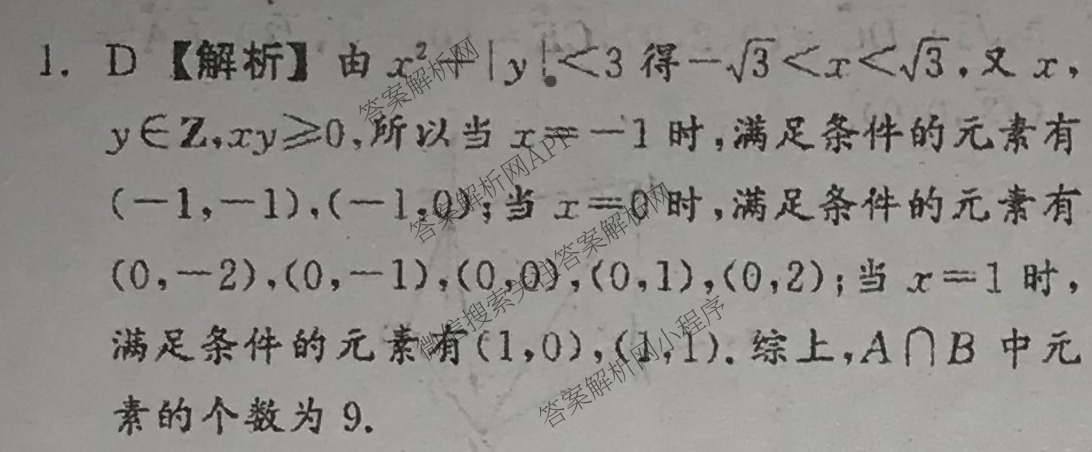 1. D 【解析】由 x²+|y|<3 得 -√3<x<√3,又 x,
y∈Z,xy≥0,所以当 x=-1 时,满足条件的元素有
(-1,-1),(-1,0);当 x=0 时,满足条件的元素有
(0,-2),(0,-1),(0,0),(0,1),(0,2);当 x=1 时,
满足条件的元素有(1,0),(1,1).综上,A∩B 中元
素的个数为 9.
答案解析网
答案解析网APP
微信搜索关注答案解析网
答案解析网小程序